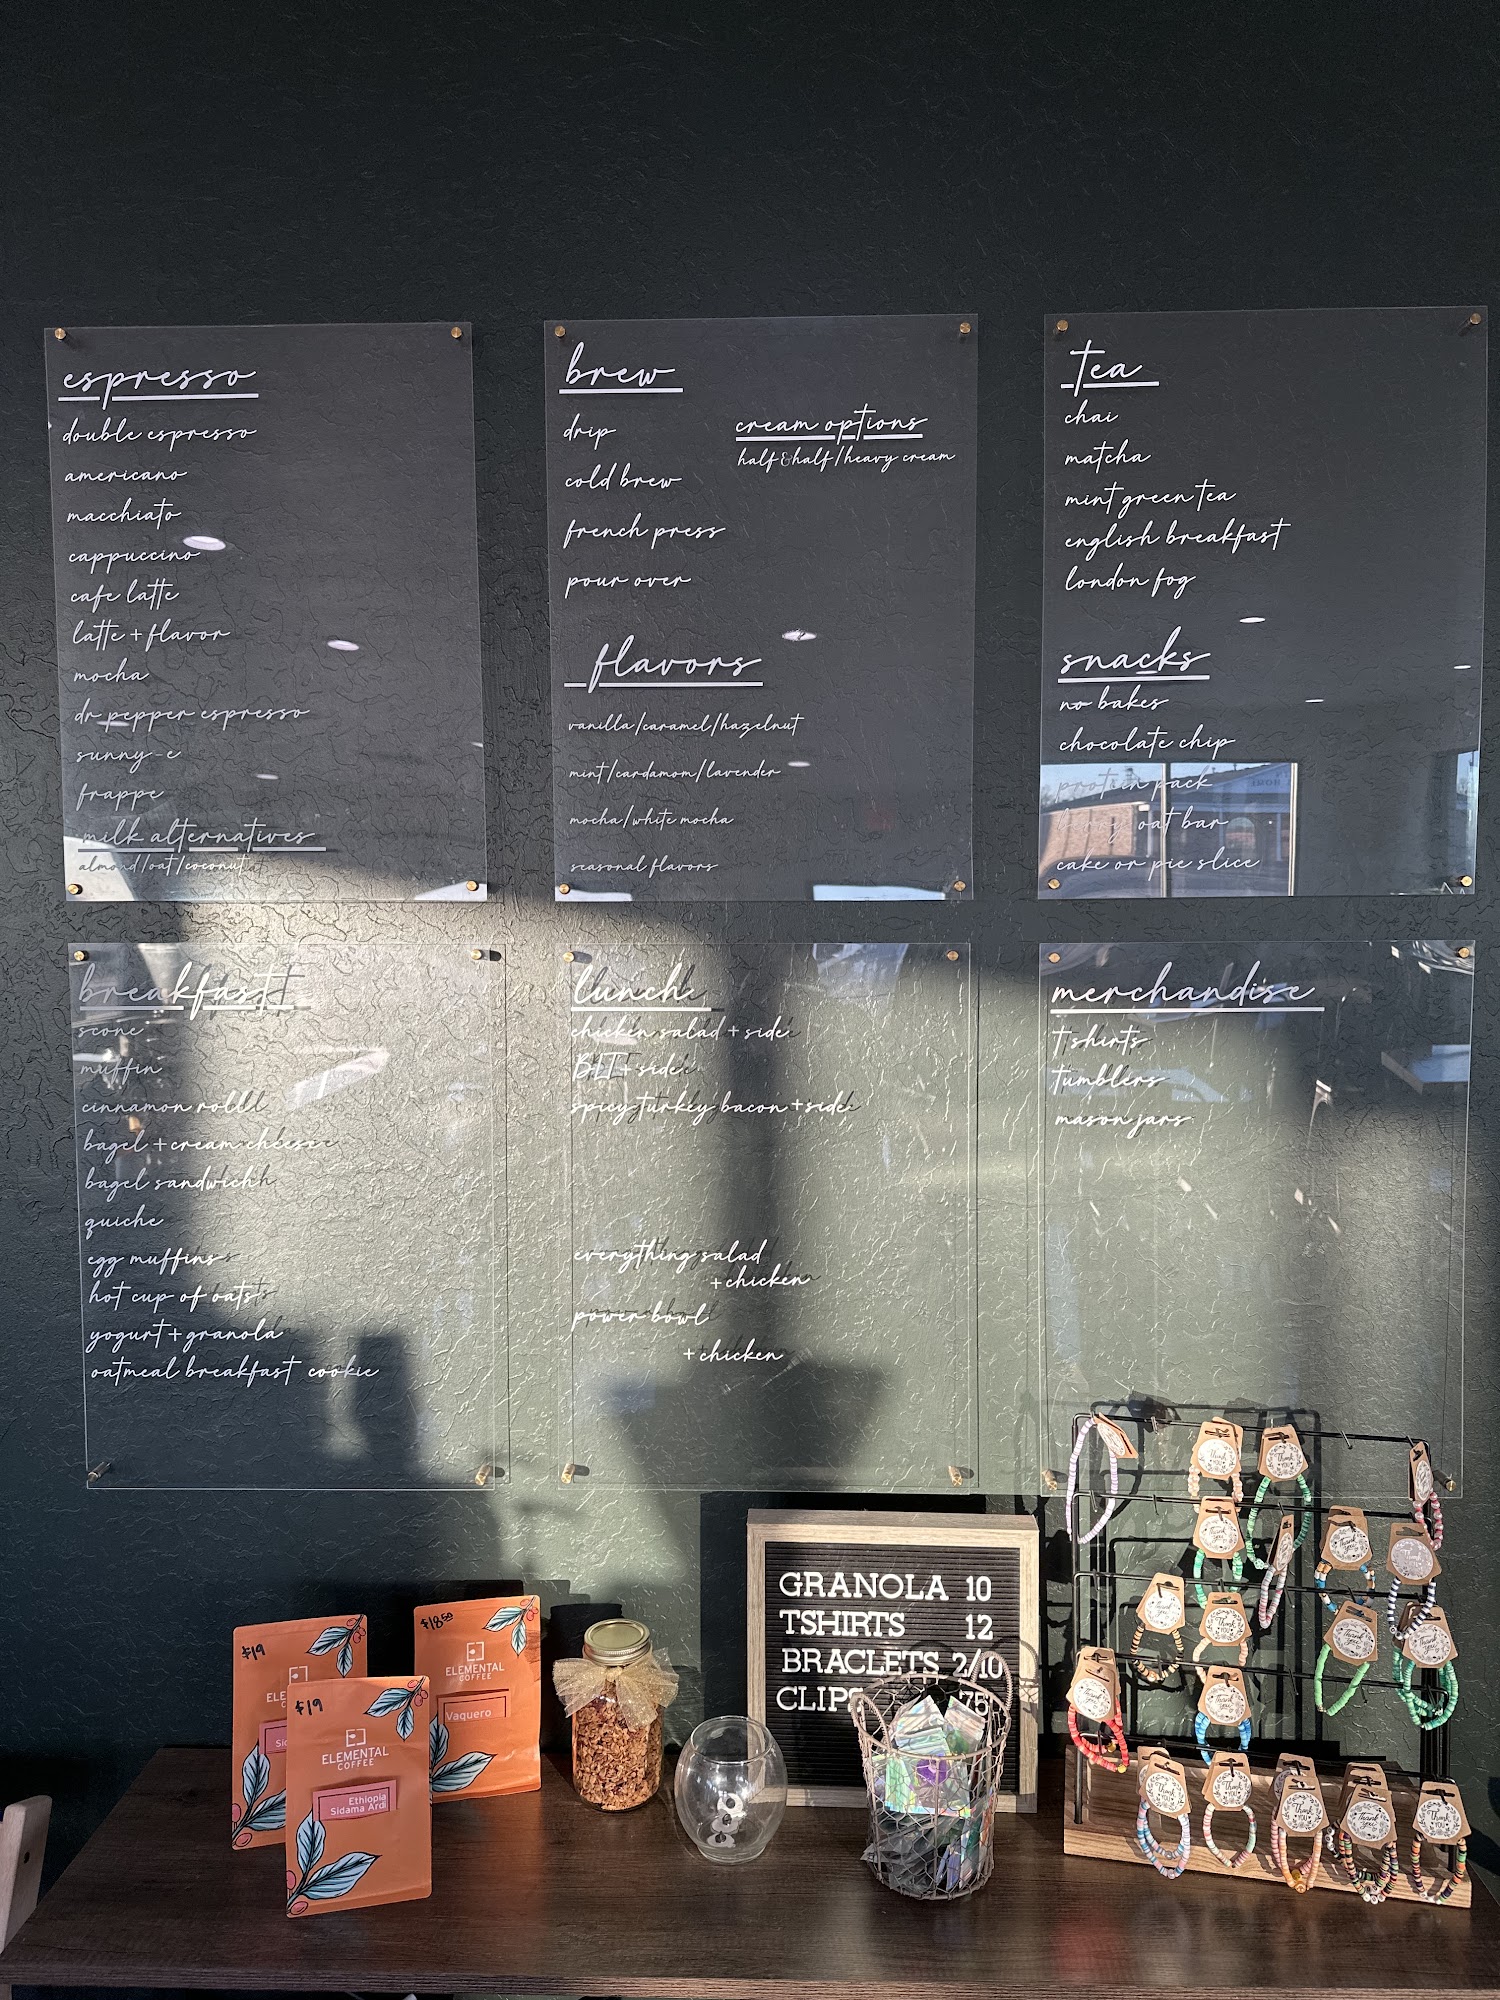 espresso
double espresso
americano
macchiato
cappuccino
cafe latte
latte + flavor
mocha
dr pepper espresso
sunny-e
frappe
milk alternatives
almond/oat/coconut
brew
drip
cold brew
french press
pour over
cream options
half&half/heavy cream
flavors
vanilla/caramel/hazelnut
mint/cardamom/lavender
mocha/white mocha
seasonal flavors
tea
chai
matcha
mint green tea
english breakfast
london fog
snacks
no bakes
chocolate chip
protein pack
oat bar
cake or pie slice
breakfast
scone
muffin
cinnamon roll
bagel + cream cheese
bagel sandwich
quiche
egg muffins
hot cup of oats
yogurt + granola
oatmeal breakfast cookie
lunch
chicken salad + side
BLT + side
spicy turkey bacon + side
everything salad
+ chicken
power bowl
+ chicken
merchandise
t shirts
tumblers
mason jars
GRANOLA 10
TSHIRTS 12
BRACLETS 2/10
CLIPS 75
$19
$19
ELEMENTAL
COFFEE
Ethiopia
Sidama Ardi
$18.50
ELEMENTAL
COFFEE
Vaquero
Thank
you